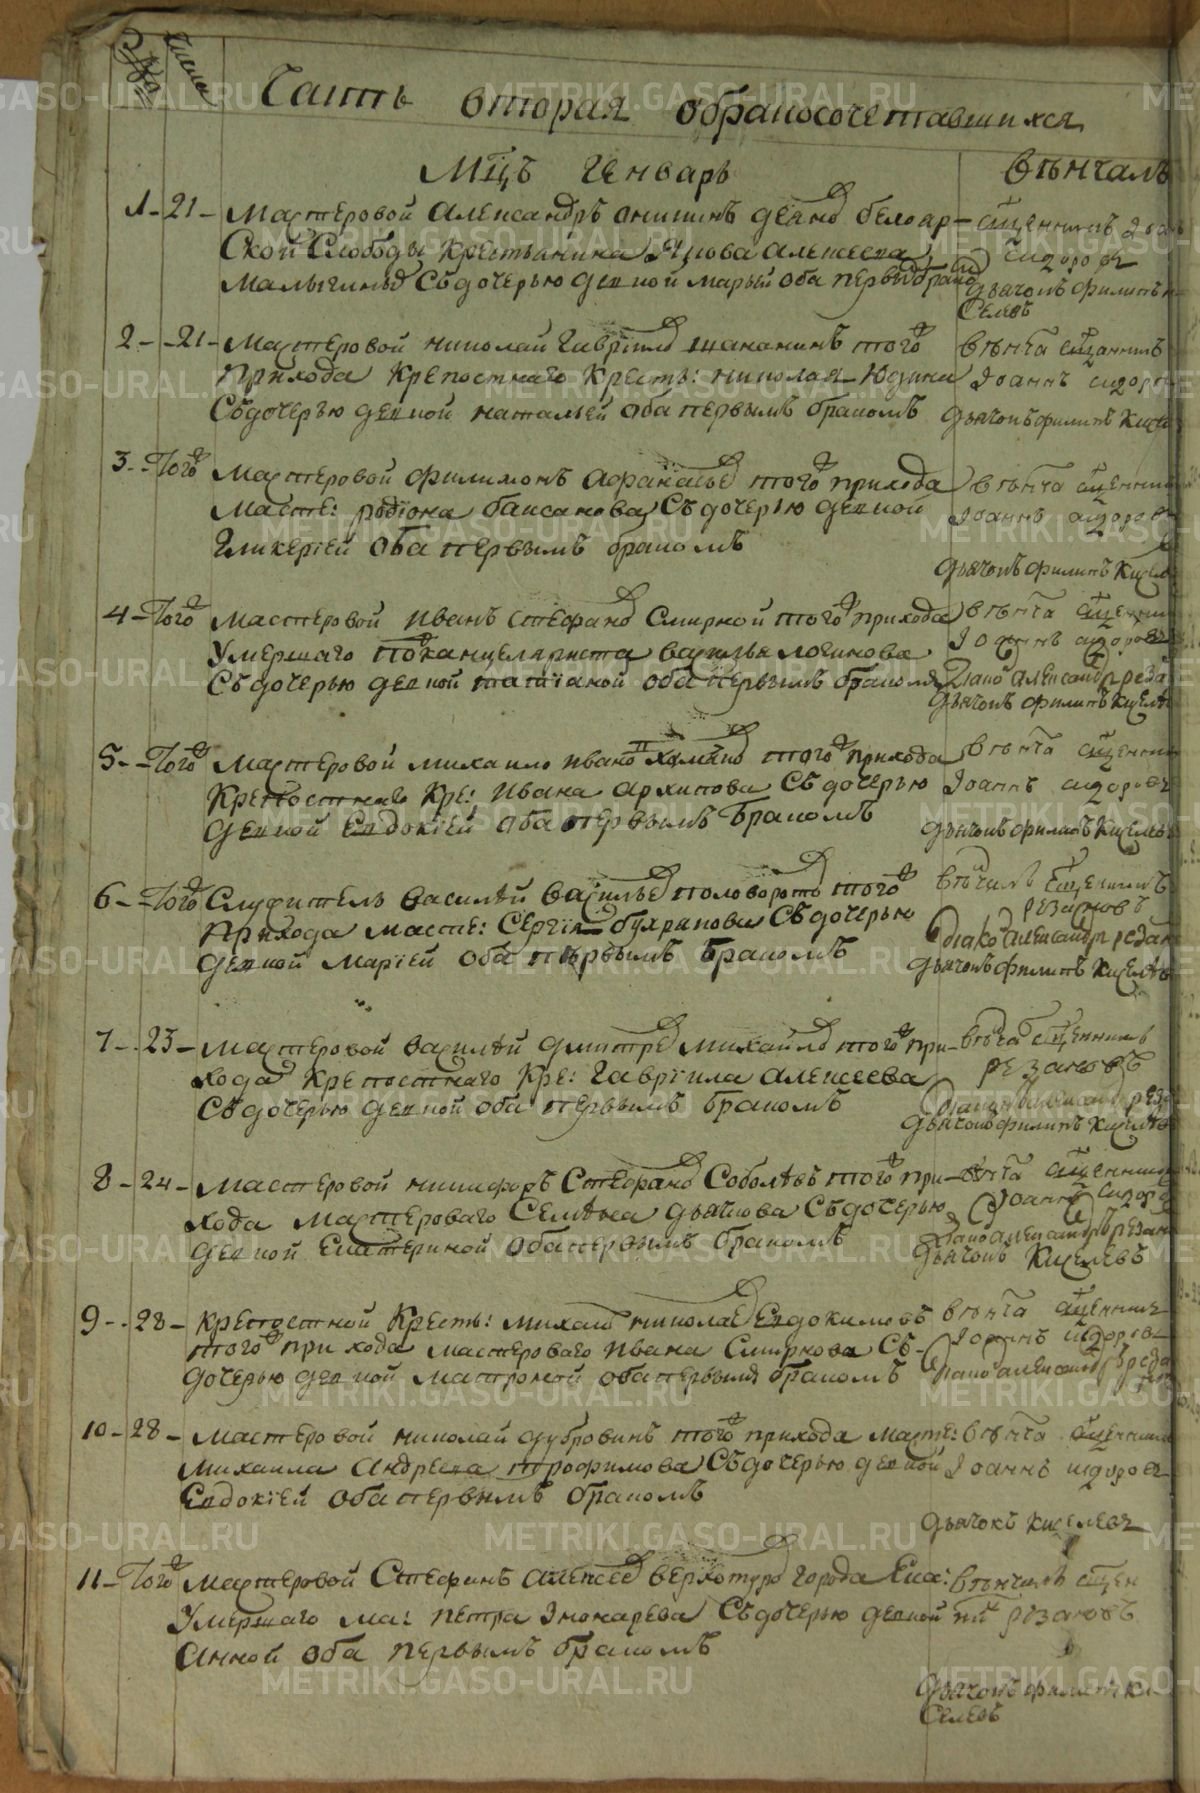 Числа
Часть вторая обракосочетавшихся
Мцъ Генварь
Вѣнчалъ
1 - 21 - Мастеровой Александръ Аникинъ белояр-
Ской Слободы Крестьянина Якова Алексеева
Малыгиныхъ Съ дочерью девкой Марьей оба первы браком
сщенникъ Иоан
Сидоров
Дьячокъ Филипъ Ки
Селевъ
2 - 21 - Мастеровой Николай Гаврїилов того
Прихода Крепостнаго Кресть: Николая Юдина
Съ дочерью девкой Натальей оба первымъ бракомъ
Вѣнча сщенникъ
Иоаннъ Сидоров
Дьячокъ Филипъ Кисел
3 - Того Мастеровой Филимонъ Афанасьев того прихода
Масте: Родїона Баксанова Съ дочерью девкой
Гликерїей оба первымъ бракомъ
Вѣнча сщенник
Иоаннъ Сидоров
Дьячокъ Филипъ Кисел
4 - Того Мастеровой Иванъ Стефанов Смирной того прихода
Умершаго Поканцеляриста Василья Логинова
Съ дочерью девкой Татїаной оба первымъ браком
Вѣнча сщенни
Иоаннъ Сидоров
Диако Александр Реза
Дьячокъ Филипъ Киселев
5 - Того Мастеровой Михаило Иванов того прихода
Крепостнаго Кре: Ивана Архипова Съ дочерью
Девкой Евдокїей оба первымъ Бракомъ
Вѣнча сщенни
Иоаннъ Сидоров
Дьячокъ Филипъ Киселев
6 - Того Служитель Василѣй Васильев Половоротов того
Прихода Масте: Сергїя Бухракова Съ дочерью
Девкой Марїей оба первымъ Бракомъ
Вѣнчалъ Сщенникъ
Резановъ
Диако Александр Резан
Дьячокъ Филипъ Киселѣв
7 - 23 - Мастеровой Василѣй Дмитрев Михайлов того при-
хода Крепостнаго Кре: Гаврїила Алексеева
Съ дочерью девкой оба первымъ Бракомъ
Вѣнча Сщенникъ
Резановъ
Дьячокъ Филипъ Киселѣв
8 - 24 - Мастеровой Никифоръ Стефанов Соболѣвъ того при-
хода Мастероваго Семѣна Дьячкова Съ дочерью
Девкой Екатериной оба первымъ Бракомъ
Вѣнча сщенник
Иоаннъ Сидоров
Диако Александръ Резан
Дьячокъ Киселевъ
9 - 28 - Крепостной Кресть: Михаил Николаев Евдокимовъ
того прихода Мастероваго Ивана Смирнова Съ-
дочерью девкой Матроной оба первымъ бракомъ
Вѣнча сщенник
Иоаннъ Сидоров
Диако Александр Реза
10 - 28 - Мастеровой Николай Дубровинъ того прихода Масте:
Михаила Андреева Трофимова Съ дочерью девкой
Евдокїей оба первымъ бракомъ
Вѣнча сщенник
Иоаннъ Сидоров
Дьячокъ Киселевъ
11 - Того Мастеровой Стефанъ Алексеев Верхотуров города Ека:
Умершаго Ма: Петра Съ дочерью девкой
Анной оба первымъ бракомъ
Вѣнчалъ сщен
никъ Резановъ
Дьячокъ Филипъ Ки
Селевъ
METRIKI.GASO-URAL.RU